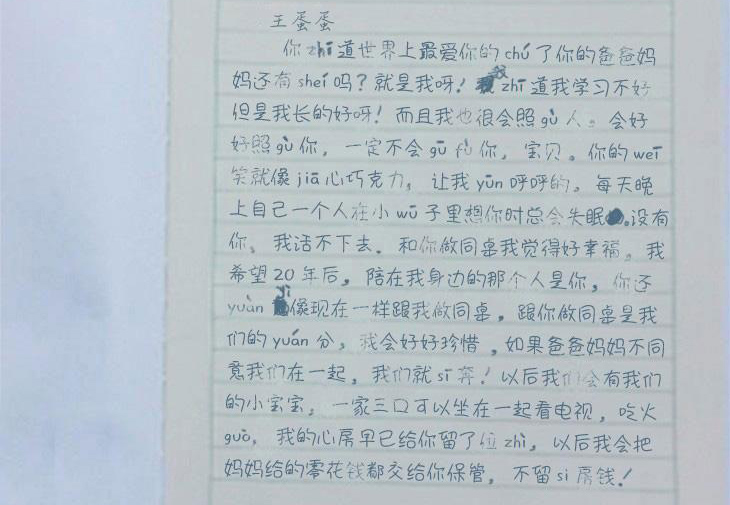 王蛋蛋
你zhī道世界上最爱你的chú了你的爸爸妈
妈还有sheí吗?就是我呀!我zhī道我学习不好
但是我长的好呀!而且我也很会照gù人。会好
好照gù你,一定不会gū fù你,宝贝。你的weī
笑就像jiā心巧克力,让我yūn呼呼的,每天晚
上自己一个人在小wū子里想你时总会失眠。没有
你,我活不下去.和你做同桌我觉得好幸福。我
希望20年后,陪在我身边的那个人是你,你还
yuàn jì像现在一样跟我做同桌,跟你做同桌是我
们的yuán分,我会好好珍惜,如果爸爸妈妈不同
意我们在一起,我们就sī奔!以后我们会有我们
的小宝宝,一家三口可以坐在一起看电视,吃火
guō,我的心房早已给你留了位zhì,以后我会把
妈妈给的零花钱都交给你保管,不留sī房钱!